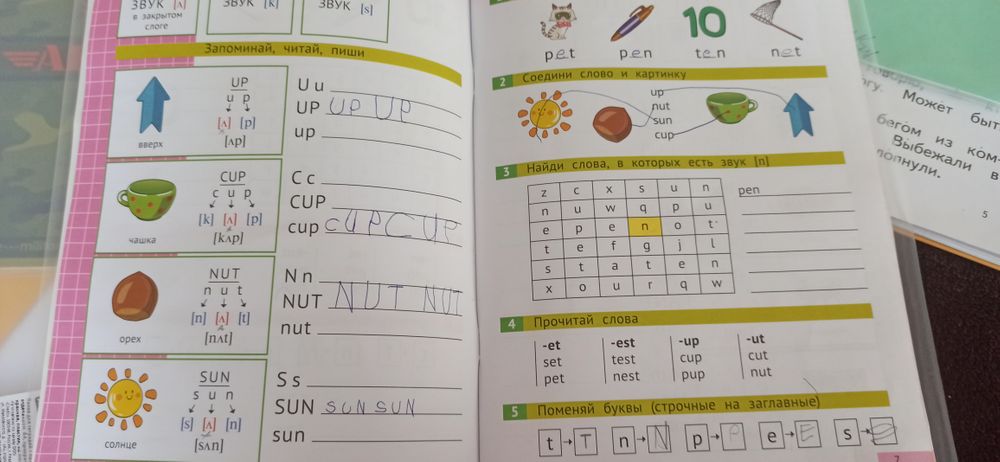 ЗВУК [ʌ]
в закрытом
слоге
ЗВУК [k]
ЗВУК [s]
Запоминай, читай, пиши
UP
u p
[ʌ] [p]
[ʌp]
вверх
U u
UP UP UP
up
CUP
c u p
[k] [ʌ] [p]
[kʌp]
чашка
C c
CUP
cup CUP CUP
NUT
n u t
[n] [ʌ] [t]
[nʌt]
орех
N n
NUT NUT NUT
nut
SUN
s u n
[s] [ʌ] [n]
[sʌn]
солнце
S s
SUN SUN SUN
sun
10
pet pen ten net
2 Соедини слово и картинку
up
nut
sun
cup
3 Найди слова, в которых есть звук [n]
z c x s u n
n u w q p u
e p e n o t
t e f g j l
s t a t e n
x o u r q w
pen
4 Прочитай слова
-et -est -up -ut
set test cup cut
pet nest pup nut
5 Поменяй буквы (строчные на заглавные)
t T n N p P e E s S
7
Может быт
бегом из ком-
Выбежали в
5